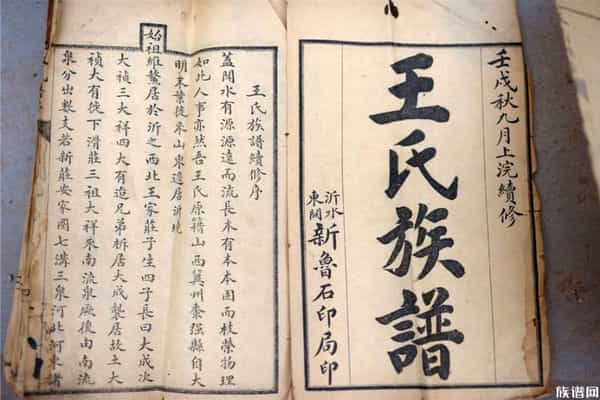 壬戌秋九月上浣續修
王氏族譜
沂水
東關
新魯石印局印
王氏族譜續修序
蓋聞水有源源遠而流長木有本本固而枝榮物理
如此人事亦然吾王氏原籍山西冀州棗强縣自大
明末葉徙來山東遂居沂境
始祖維鰲居於沂之西北王家莊子生四子長曰大成次
大禎三大祥四大有迨兄弟析居大成襲居故土大
禎大有徙下滑莊三祖大祥來南流泉厥後由南流
泉分出數支若新莊安家圈七溝三泉河北河東諸
族谱网